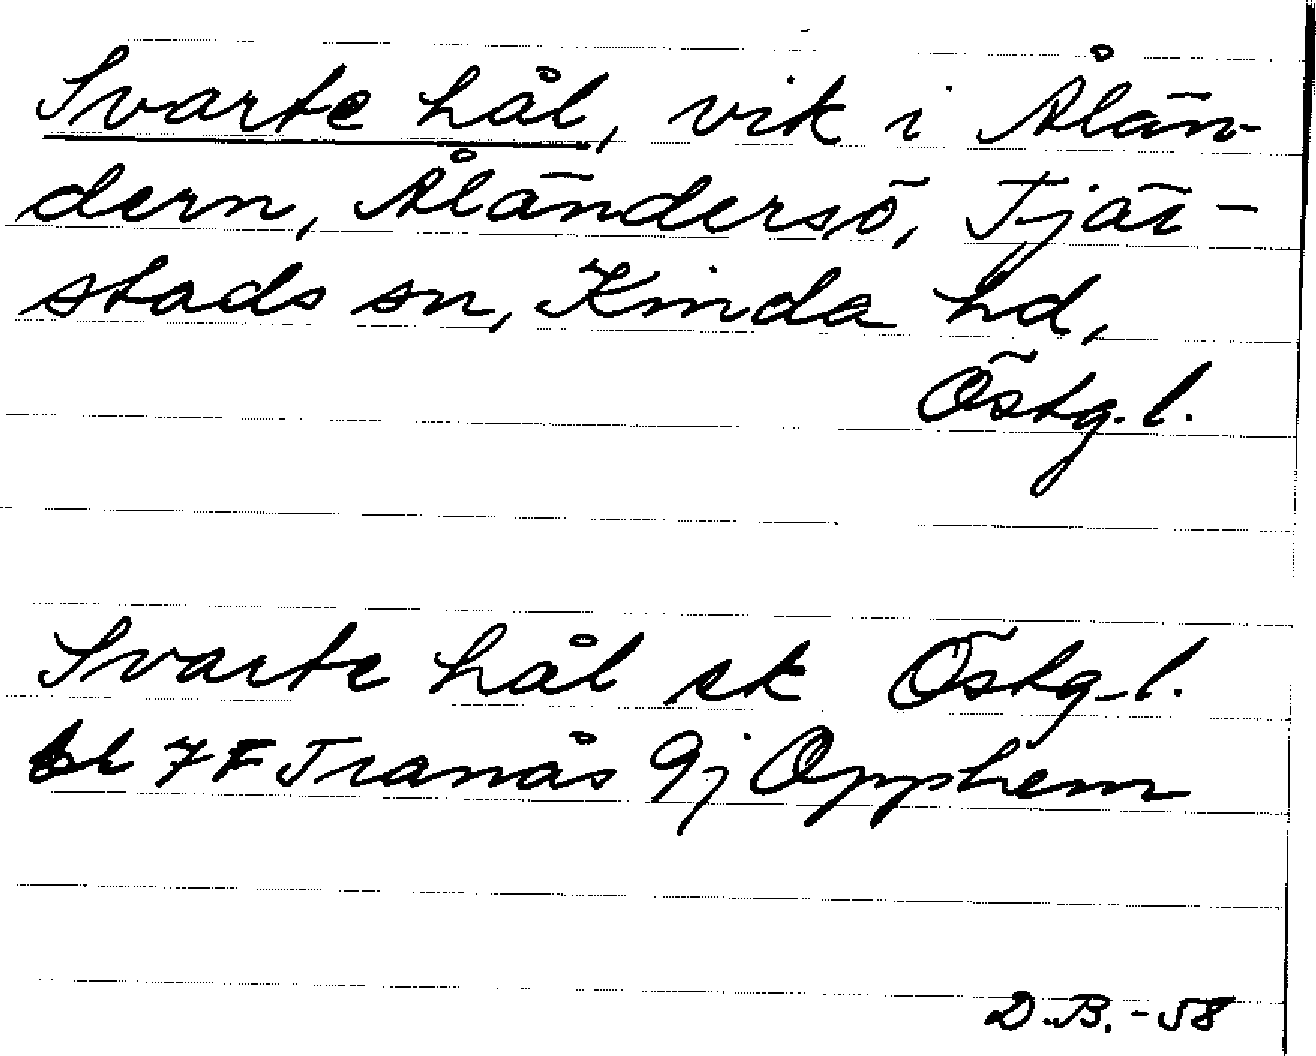 Svarte hål, vik i Ålän-
dern, Åländersö, Tjär-
stads sn, Kinda hd,
Östg. l.
Svarte hål ek Östg. l.
bl 7F Tranås 9j Opphem
D.B. -58